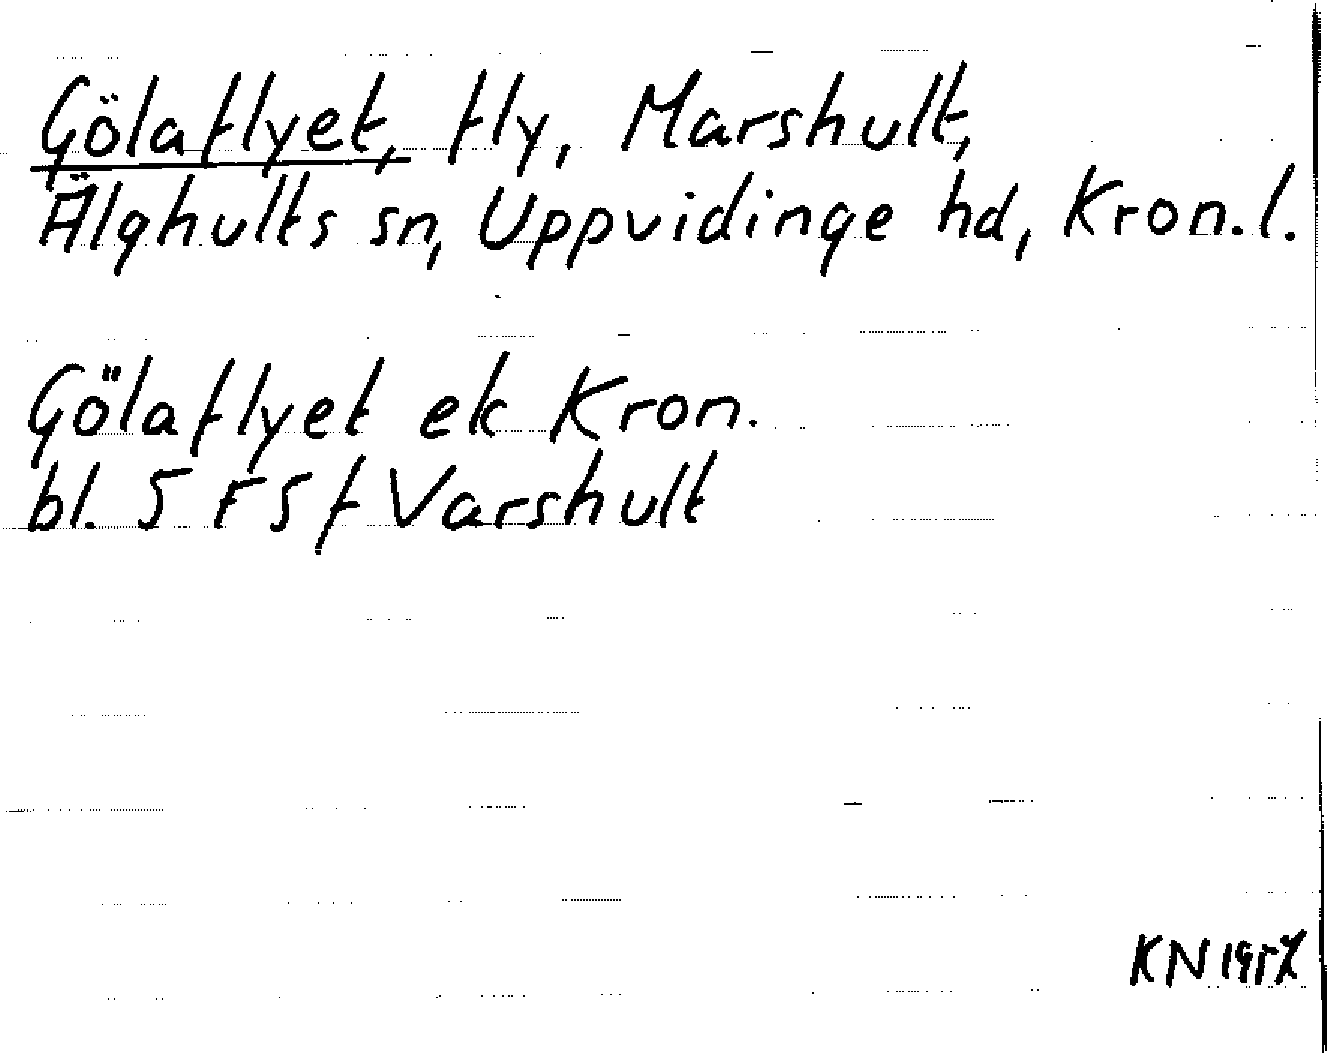 Gölaflyet, fly, Marshult,
Älghults sn, Uppvidinge hd, Kron.l.
Gölaflyet ek Kron.
bl. 5 F S f Varshult
KN 1957